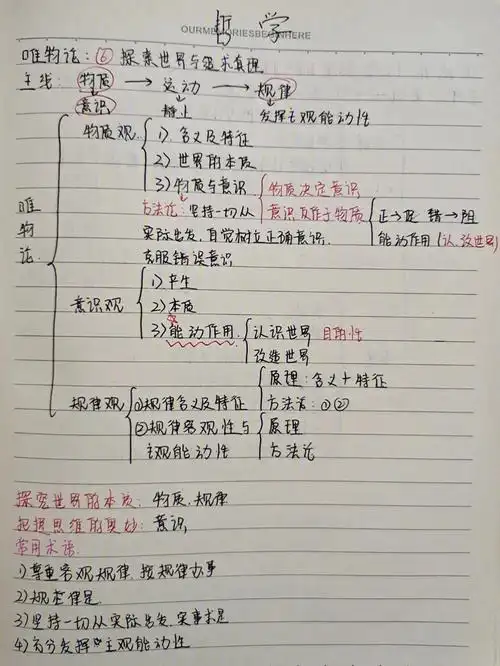 哲学
OURMEMORIESBEGINHERE
唯物论:⑥ 探索世界与追求真理
主线: 物质 → 运动 → 规律
意识 静止 发挥主观能动性
唯物论
物质观
1). 含义及特征
2) 世界的本质
3) 物质与意识
物质决定意识
意识反作用于物质
正→促 错→阻
能动作用 (认、改世界)
方法论: 坚持一切从
实际出发, 自觉树立正确意识.
克服错误意识
意识观
1) 产生
2) 本质
3) 能动作用
认识世界 目的性
改造世界
规律观
①规律含义及特征
原理: 含义+特征
方法论: ①②
②规律客观性与
主观能动性
原理
方法论
探究世界的本质: 物质、规律
把握思维的奥妙: 意识
常用术语:
1) 尊重客观规律, 按规律办事
2) 规本律是
3) 坚持一切从实际出发, 实事求是
4) 充分发挥 主观能动性